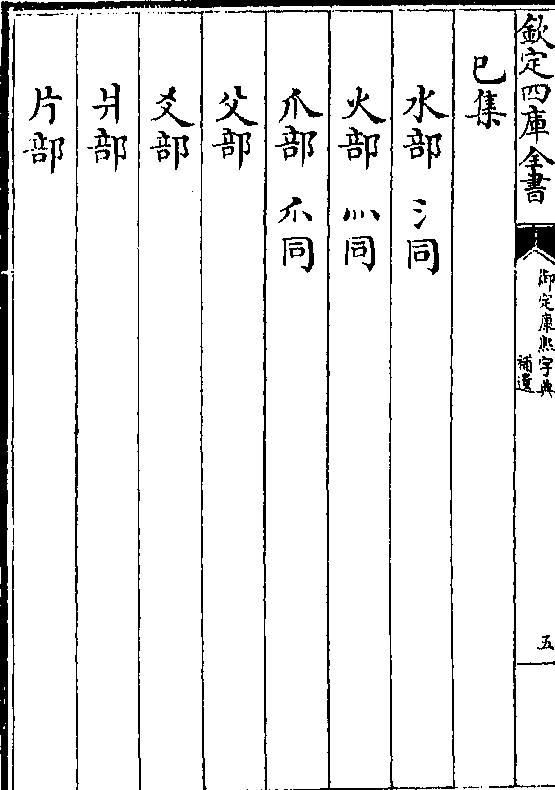 欽定四庫全書
御定康熙字典
補遺
五
巳集
水部 氵同
火部 灬同
爪部 爫同
父部
爻部
爿部
片部